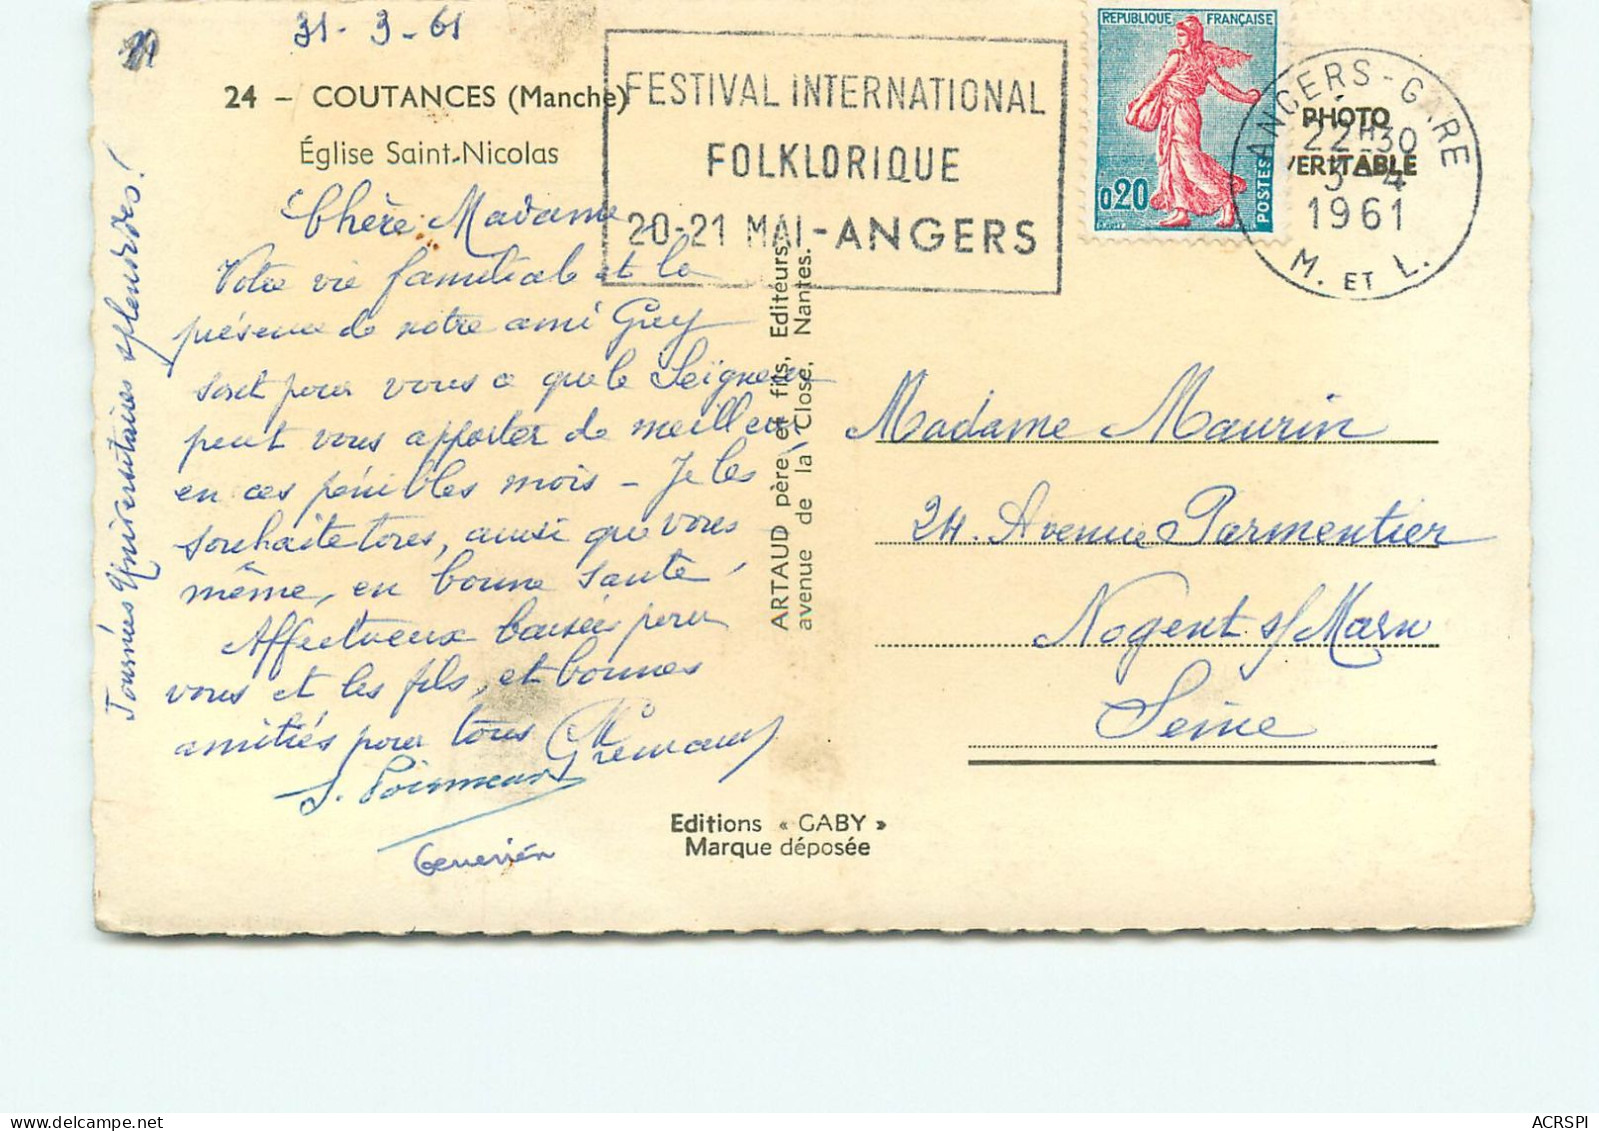 31-3-61
24 - COUTANCES (Manche)
Église Saint-Nicolas
FESTIVAL INTERNATIONAL
FOLKLORIQUE
20-21 MAI - ANGERS
REPUBLIQUE FRANÇAISE
0,20
POSTES
ANGERS-GARE
22H30
3-4
1961
M. ET L.
PHOTO
VERITABLE
Chère Madame
Votre vie familiale et la
présence de notre ami Guy
sont pour vous ce que le Seigneur
peut vous apporter de meilleur
en ces pénibles mois - Je les
souhaite tous, ainsi que vous
même, en bonne santé,
Affectueux baisers pour
vous et les fils, et bonnes
amitiés pour tous
Journées Universitaires splendides!
ARTAUD père et fils, Editeurs,
avenue de la Close, Nantes.
Madame Maurin
24. Avenue Parmentier
Nogent s/Marne
Seine
Editions « GABY »
Marque déposée
ACRSPI